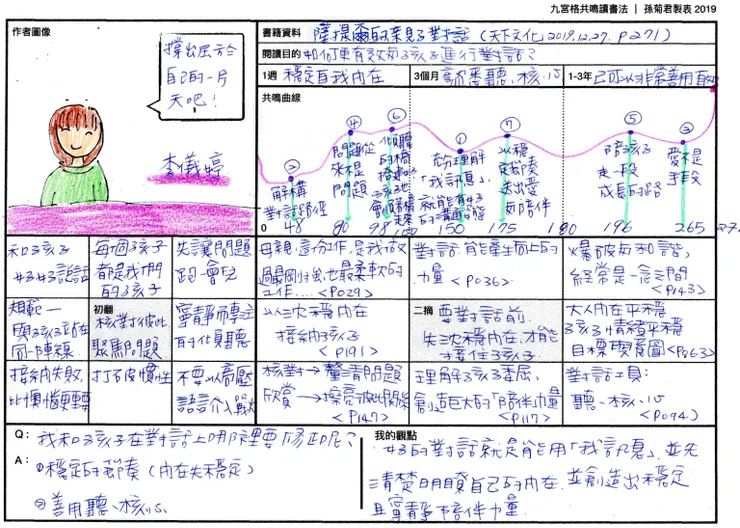 九宮格共鳴讀書法 | 孫菊君製表 2019
作者圖像
撐出屬於
自己的一片
天吧!
李義婷
書籍資料 薩提爾的親子對話 (天下文化 2019.12.27. P271)
閱讀目的 如何更有效和孩子進行對話?
1週 穩定自我內在
3個月 聽、核、心
1-3年 已可以非常善用
共鳴曲線
② ④ ⑥ ① ⑦ ⑤ ③
解構
對話路徑
問題從
來不是
問題
傾聽
充分理解
「我訊息」
就能有好
的溝通
以穩
定節奏
送出愛
如陪伴
陪孩子
走一段
成長的路
愛不是
手段
0 48 80 98 150 175 180 196 265
和孩子
好好說話
每個孩子
都是我們
的孩子
先讓問題
跑一會兒
規範一
與孩子站在
同一陣線
初翻
核對彼此
聚焦問題
寧靜而專注
的傾聽
接納失敗,
比懊惱更重要
打破慣性
不要以高壓
語言介入
母親這份工作,是我做
過最剛強也最柔軟的
工作.... <P029>
對話能產生向上的
力量 <P036>
爆破和和諧,
經常是一念之間
<P143>
以三次穩內在
接納孩子
<P191>
二摘
要對話前,
先三次穩內在,才能
接住孩子
大人內在平穩
孩子情緒平穩
目標契合圖 <P063>
核對→釐清問題
欣賞→擦亮彼此關係
<P147>
理解孩子委屈,
創造巨大的「陪伴力量」
<P117>
對話工具:
聽、核、心
<P094>
Q: 我和孩子在對話上哪裡要修正呢?
A: ①穩定的節奏(內在先穩定)
②善用聽、核心
我的觀點
好的對話就是能用「我訊息」,並先
清楚明瞭自己的內在,並創造出穩定
且寧靜下陪伴力量